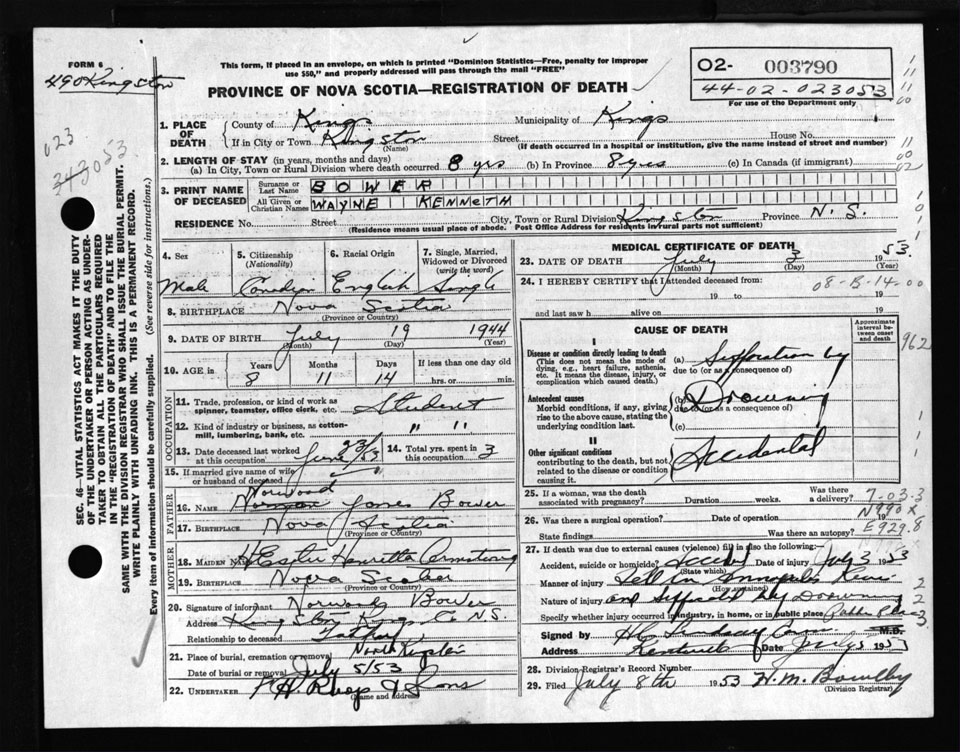 FORM 6
490 Kingston
This form, if placed in an envelope, on which is printed "Dominion Statistics—Free, penalty for improper
use $50," and properly addressed will pass through the mail "FREE"
PROVINCE OF NOVA SCOTIA—REGISTRATION OF DEATH
02- 003790
44-02-023053
For use of the Department only
1. PLACE OF DEATH
County of Kings Municipality of Kings
If in City or Town Kingston Street House No.
(Name) (If death occurred in a hospital or institution, give the name instead of street and number)
2. LENGTH OF STAY (in years, months and days)
(a) In City, Town or Rural Division where death occurred 8 yrs (b) In Province 8 yrs (c) In Canada (if immigrant)
3. PRINT NAME OF DECEASED
Surname or Last Name BOWER
All Given or Christian Names WAYNE KENNETH
RESIDENCE No. Street City, Town or Rural Division Kingston Province N. S.
(Residence means usual place of abode. Post Office Address for residents in rural parts not sufficient)
4. Sex 5. Citizenship (Nationality) 6. Racial Origin 7. Single, Married, Widowed or Divorced (write the word)
Male Canadian English Single
8. BIRTHPLACE Nova Scotia
(Province or Country)
9. DATE OF BIRTH July 19 1944
(Month) (Day) (Year)
10. AGE in Years Months Days If less than one day old
8 11 14 hrs. or min.
OCCUPATION
11. Trade, profession, or kind of work as
spinner, teamster, office clerk, etc. Student
12. Kind of industry or business, as cotton-
mill, lumbering, bank, etc. " "
13. Date deceased last worked at this occupation June 23/53 14. Total yrs. spent in this occupation 3
15. If married give name of wife or husband of deceased
FATHER
16. NAME Norwood James Bower
17. BIRTHPLACE Nova Scotia
(Province or Country)
MOTHER
18. MAIDEN NAME Henrietta Armstrong
19. BIRTHPLACE Nova Scotia
(Province or Country)
20. Signature of informant Norwood Bower
Address Kingston Kings Co N.S.
Relationship to deceased Father
21. Place of burial, cremation or removal North Kingston
Date of burial or removal July 5/53
22. UNDERTAKER & Sons
(Name and address)
MEDICAL CERTIFICATE OF DEATH
23. DATE OF DEATH July 3 1953
(Month) (Day) (Year)
24. I HEREBY CERTIFY that I attended deceased from
08-B-14-00
19 to 19
and last saw h alive on 19
CAUSE OF DEATH
Approximate interval between onset and death
962
I
Disease or condition directly leading to death
(This does not mean the mode of dying, e.g., heart failure, asthenia, etc. It means the disease, injury, or complication which caused death.)
(a) Suffocation by
due to (or as a consequence of)
Antecedent causes
Morbid conditions, if any, giving rise to the above cause, stating the underlying condition last.
(b) Drowning
due to (or as a consequence of)
(c)
II
Other significant conditions
contributing to the death, but not related to the disease or condition causing it.
Accidental
25. If a woman, was the death associated with pregnancy? Duration weeks. Was there a delivery?
7-03-3
N990X
26. Was there a surgical operation? Date of operation 19
State findings Was there an autopsy?
E929.8
27. If death was due to external causes (violence) fill in also the following:—
Accident, suicide or homicide? Accident Date of injury July 3 1953
(State which)
Manner of injury Fell in Annapolis River
(How sustained)
Nature of injury and Suffocated by Drowning
Specify whether injury occurred in industry, in home, or in public place Public Place
Signed by M.D.
Address Kentville Date July 1953
28. Division Registrar's Record Number
29. Filed July 8th 1953 H. M. Bowlby
(Division Registrar)
SEC. 46—VITAL STATISTICS ACT MAKES IT THE DUTY
OF THE UNDERTAKER OR PERSON ACTING AS UNDER-
TAKER TO OBTAIN ALL THE PARTICULARS REQUIRED
IN THE "REGISTRATION OF DEATH" AND TO FILE THE
SAME WITH THE DIVISION REGISTRAR WHO SHALL ISSUE THE BURIAL PERMIT.
WRITE PLAINLY WITH UNFADING INK. THIS IS A PERMANENT RECORD.
Every item of information should be carefully supplied. (See reverse side for instructions.)